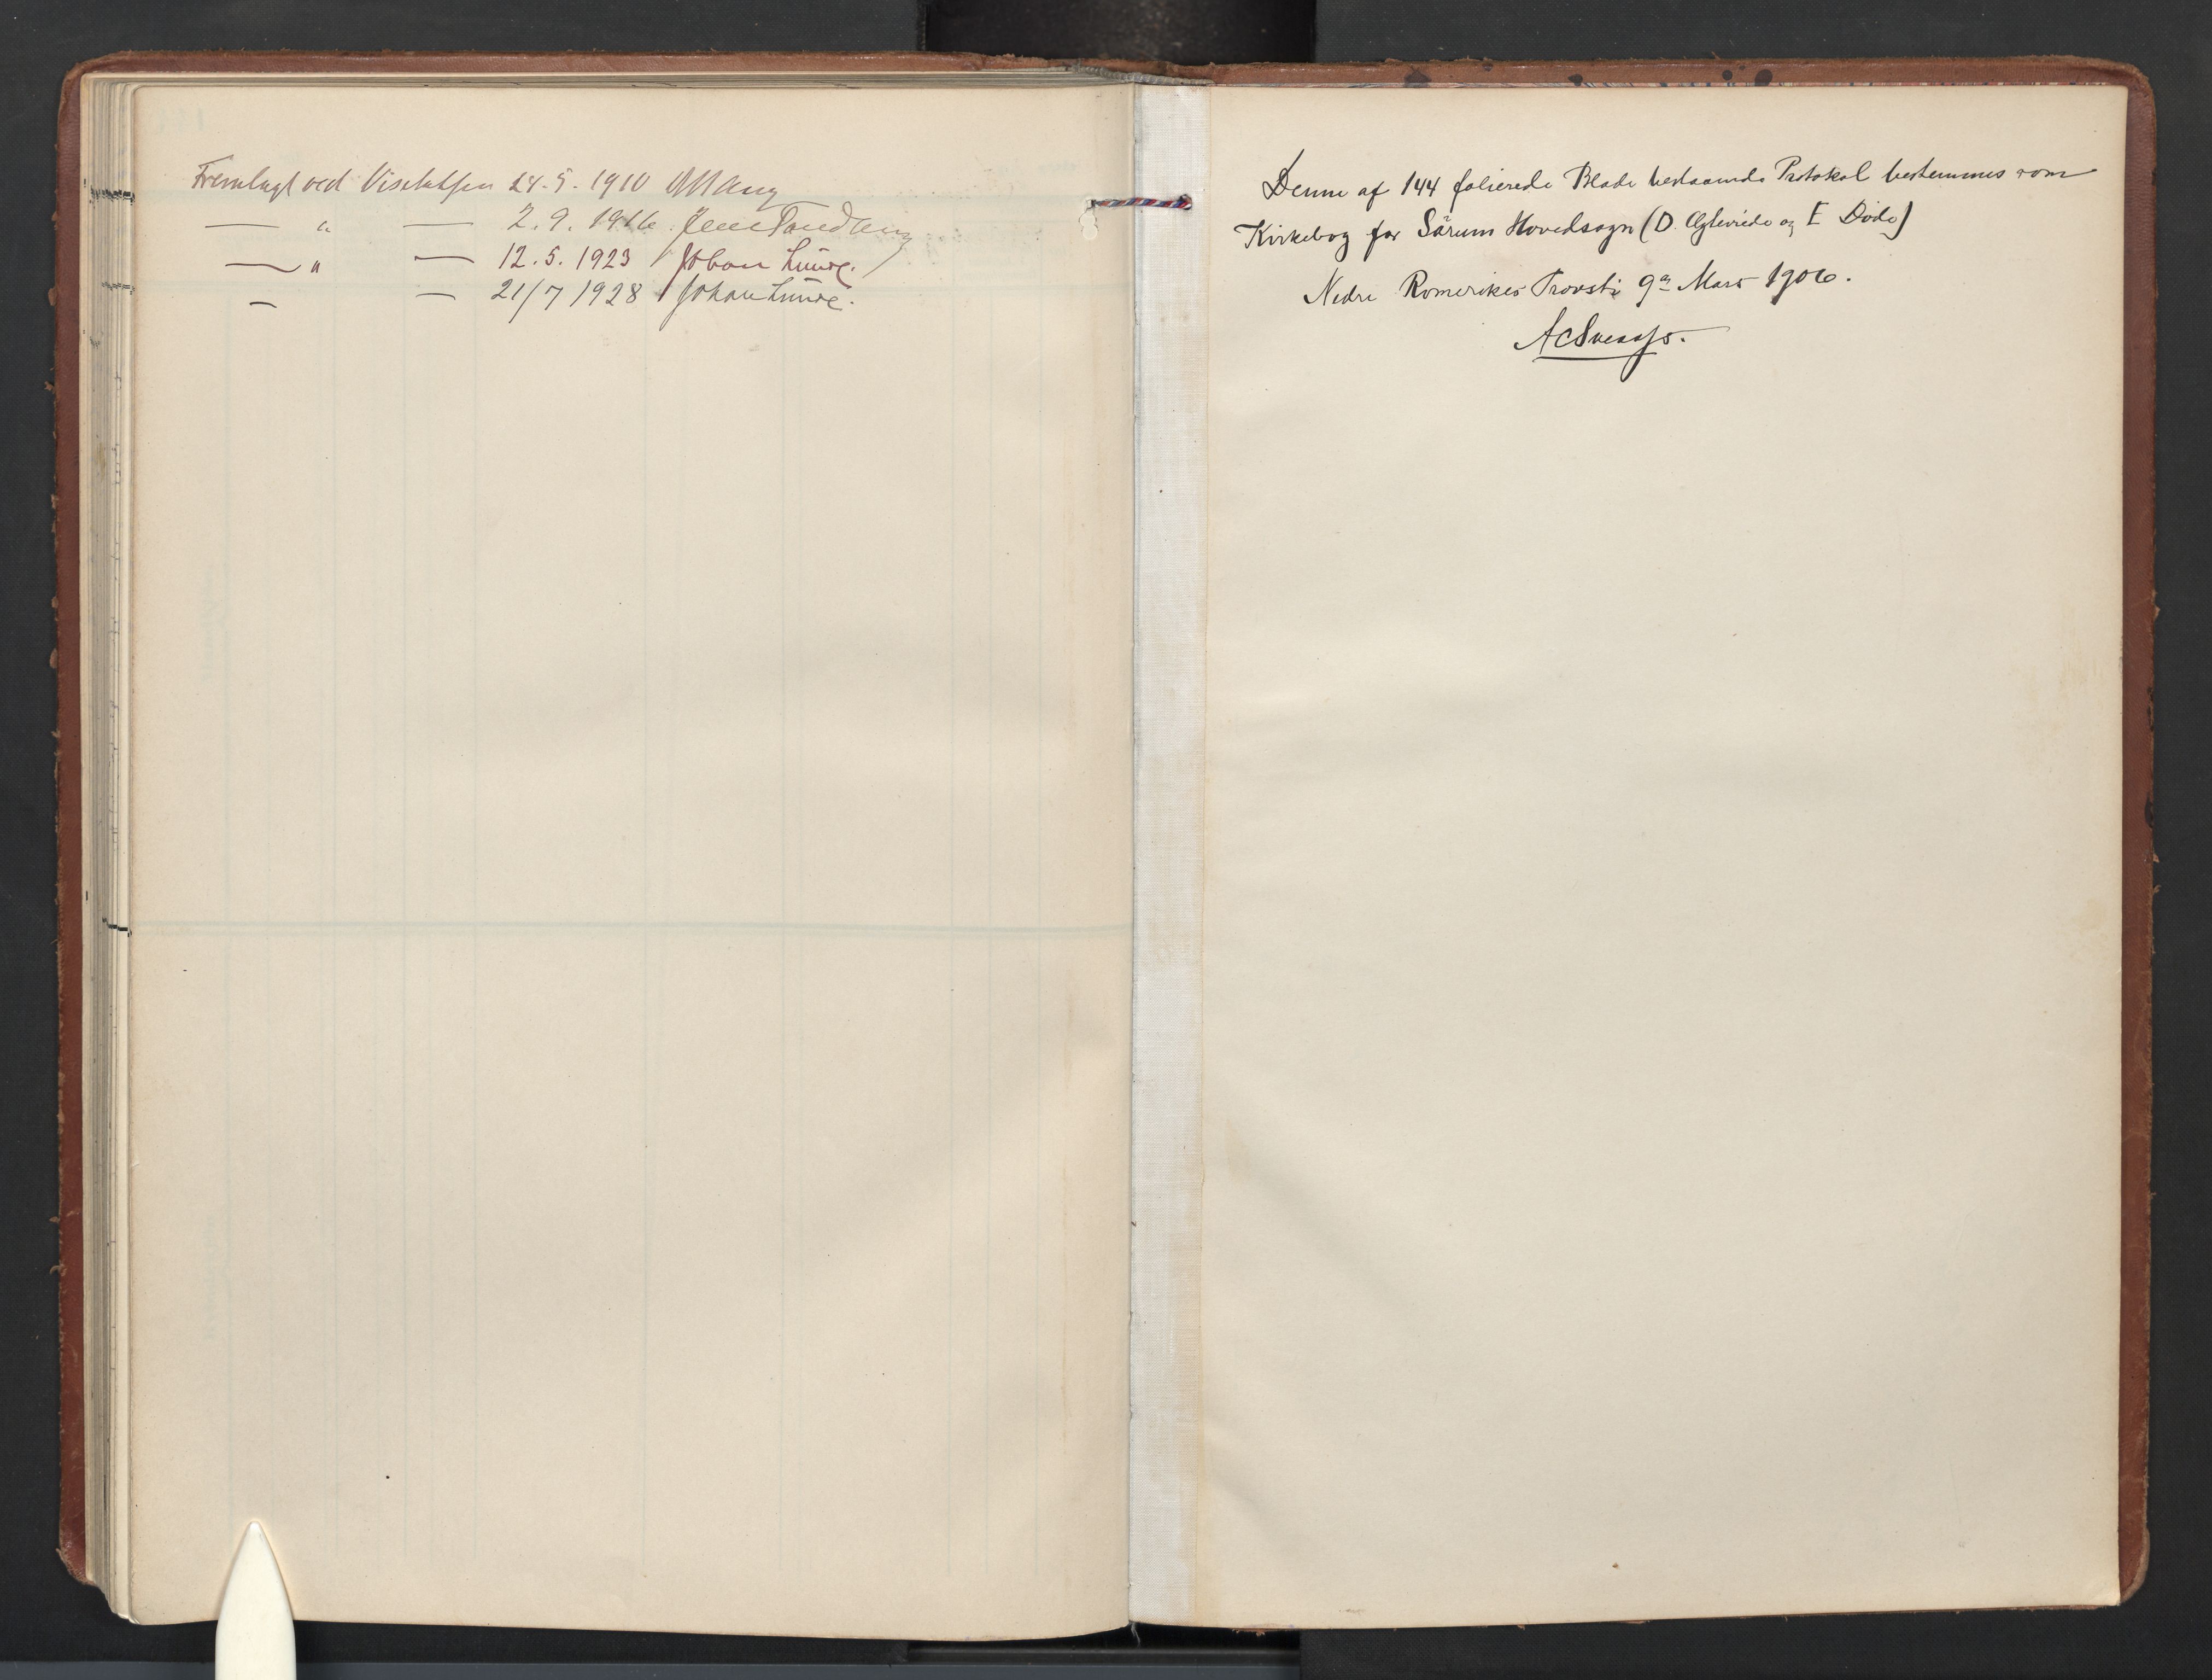 Fremlagt ved Visitatsen 24.5.1910
— " — 2.9.1916. Jens Tandberg
— " — 12.5.1923 Johan Lunde.
— — 21/7 1928 Johan Lunde.
Denne af 144 folierede Blade bestaaende Protokol bestemmes som
Kirkebog for Sörum Hovedsogn (D. Ægteviede og E Døde)
Nedre Romerikes Provsti 9de Mars 1906.